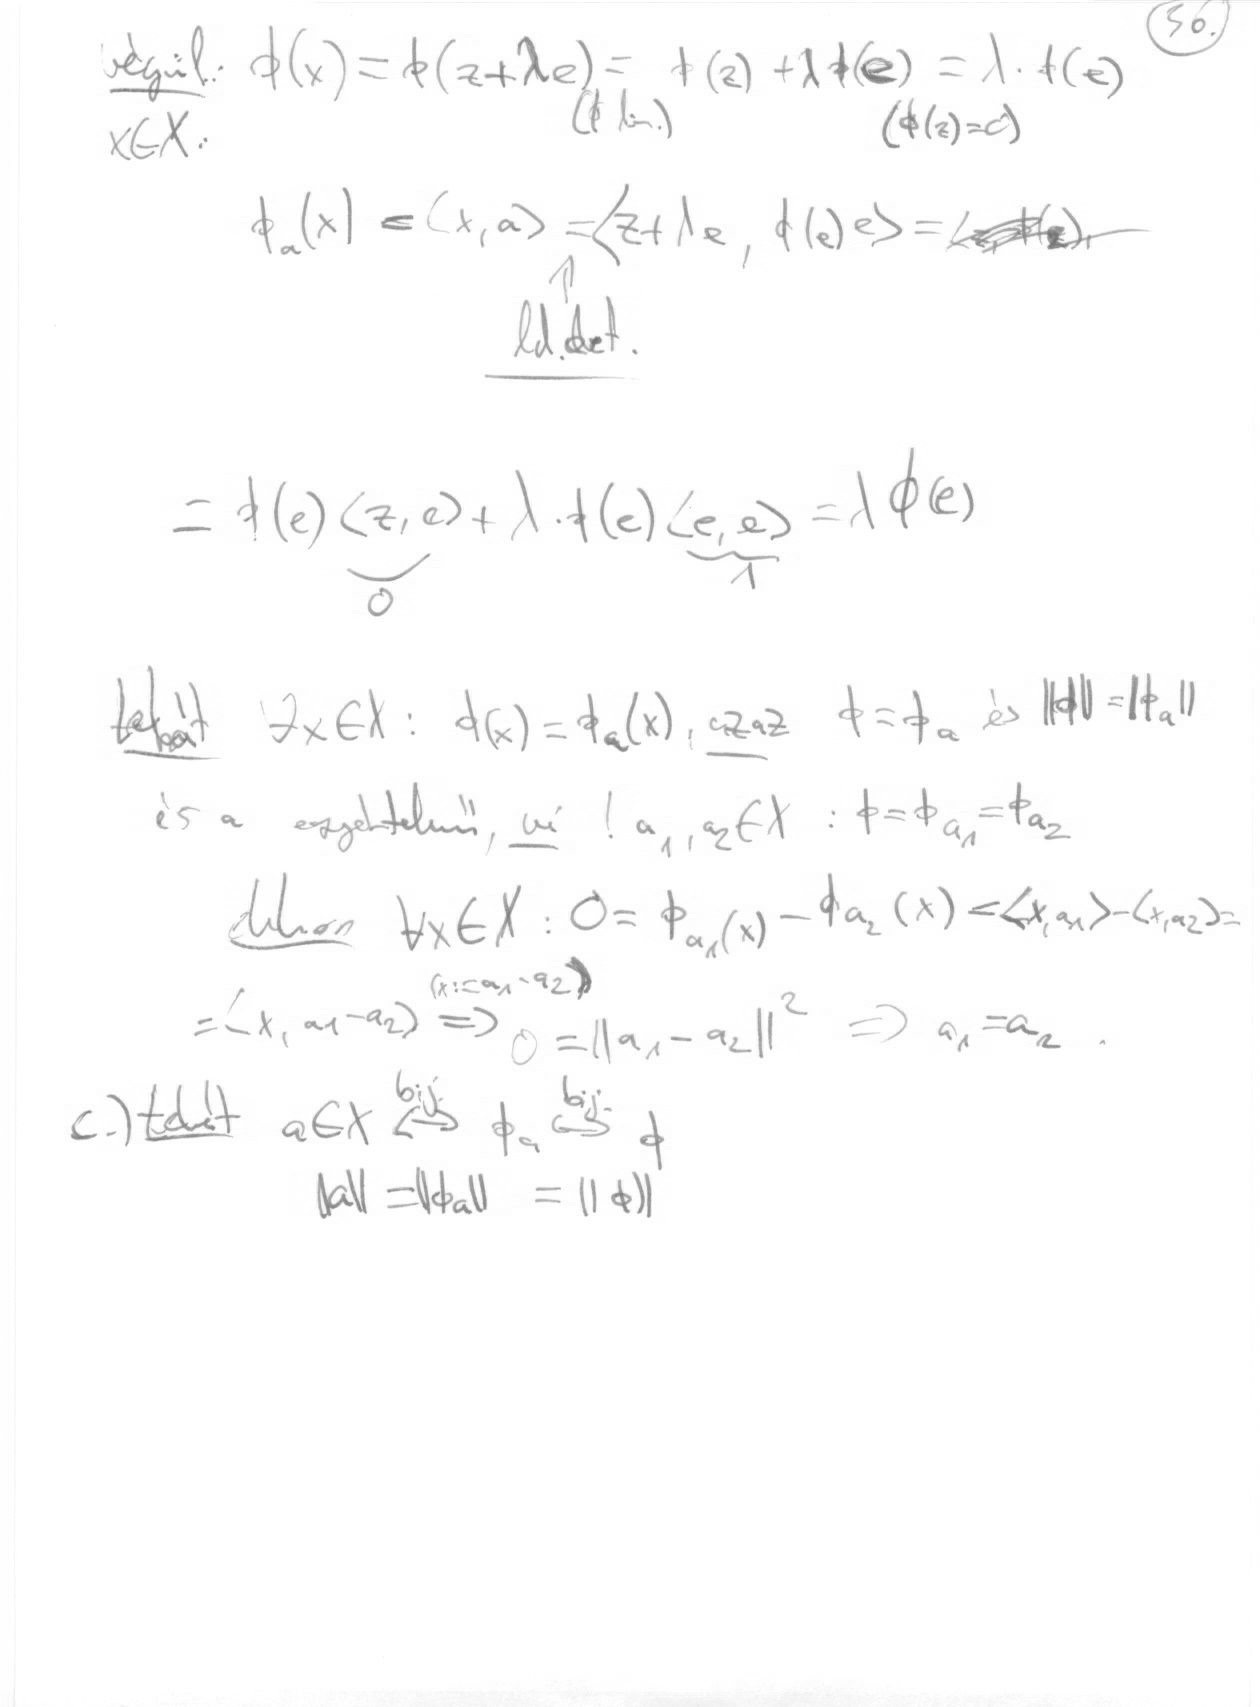 56.
végül: ϕ(x) = ϕ(z+λe) = ϕ(z) + λϕ(e) = λ·ϕ(e)
x∈X: (ϕ lin.) (ϕ(z)=0)
ϕ_a(x) = ⟨x, a⟩ = ⟨z+λe, ϕ(e)e⟩ =
↑
ld.
= ϕ(e)⟨z, e⟩ + λ·ϕ(e)⟨e, e⟩ = λϕ(e)
0 1
tehát ∀x∈X: ϕ(x) = ϕ_a(x), azaz ϕ = ϕ_a és ||ϕ|| = ||ϕ_a||
és a egyértelmű, ui ! a₁, a₂∈X : ϕ = ϕ_a₁ = ϕ_a₂
ekkor ∀x∈X: 0 = ϕ_a₁(x) − ϕ_a₂(x) = ⟨x, a₁⟩ − ⟨x, a₂⟩ =
(x:=a₁−a₂)
= ⟨x, a₁−a₂⟩ ⟹ 0 = ||a₁ − a₂||² ⟹ a₁ = a₂.
bij. bij.
c.) tehát a∈X ↔ ϕ_a ↔ ϕ
||a|| = ||ϕ_a|| = ||ϕ||